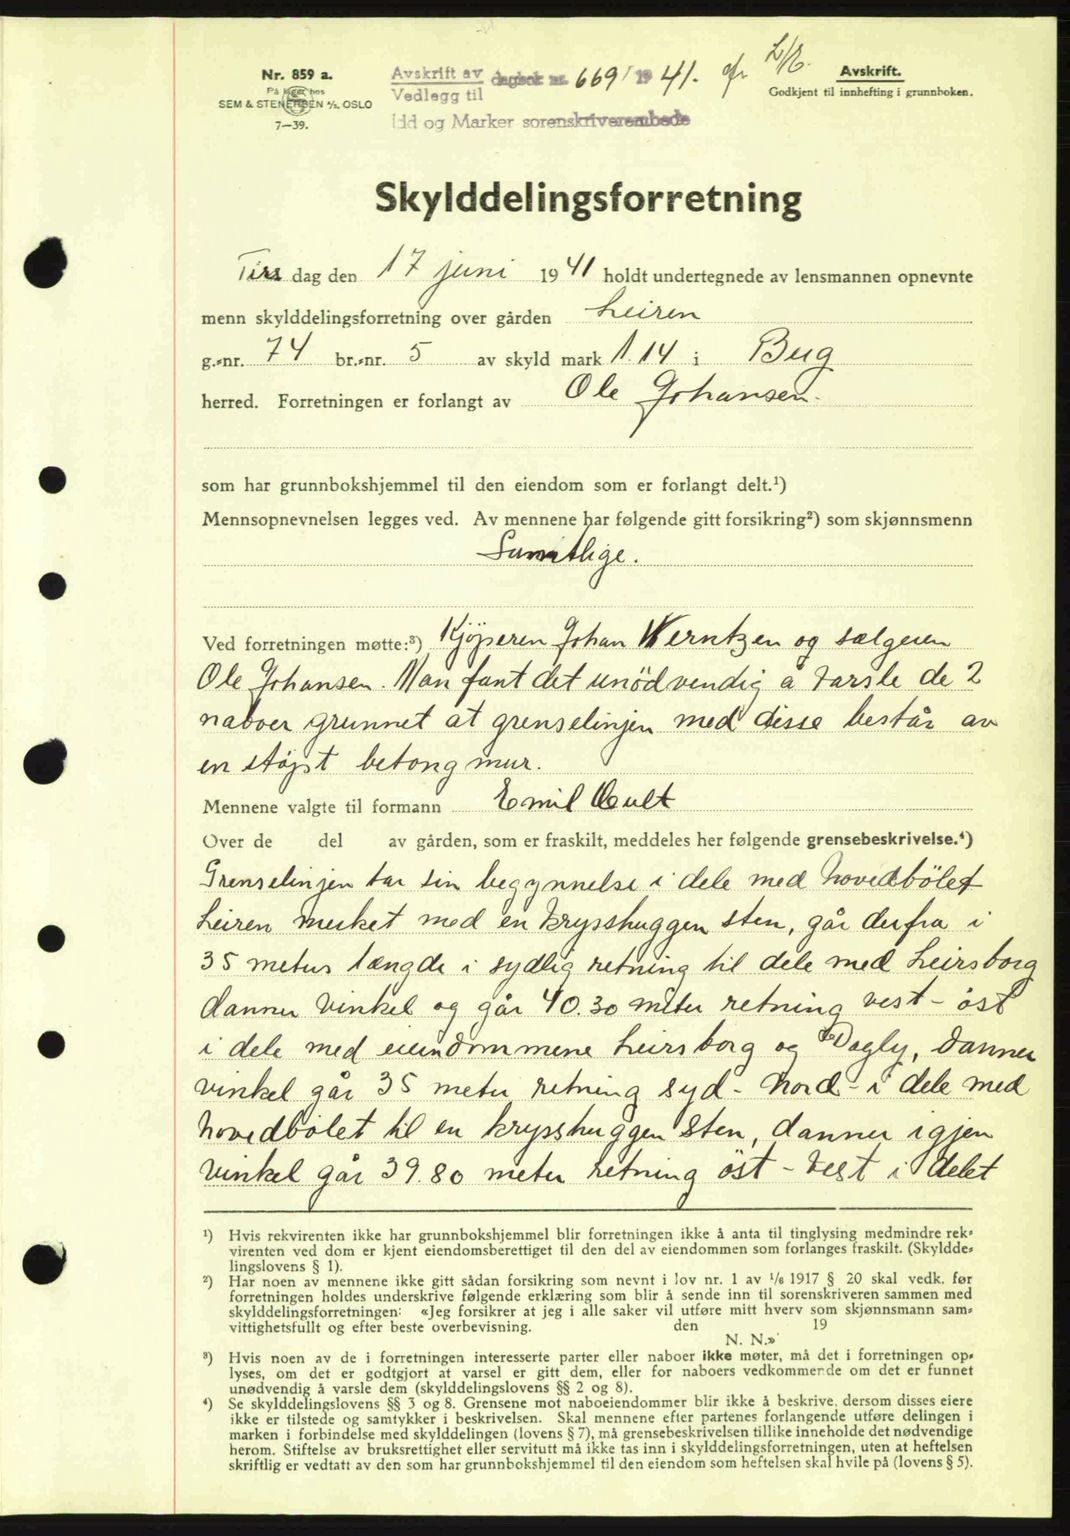 Nr. 859 a.
På lager hos
SEM & STENERSEN A/S. OSLO
7—39.
Avskrift av dagbok nr. 669 / 19 41.
Vedlegg til
Idd og Marker sorenskriverembede
Avskrift.
Godkjent til innhefting i grunnboken.
Skylddelingsforretning
Tirs dag den 17 juni 19 41 holdt undertegnede av lensmannen opnevnte
menn skylddelingsforretning over gården Leiren
g.-nr. 74 br.-nr. 5 av skyld mark 1.14 i Berg
herred. Forretningen er forlangt av Ole Johansen.
som har grunnbokshjemmel til den eiendom som er forlangt delt.¹)
Mennsopnevnelsen legges ved. Av mennene har følgende gitt forsikring²) som skjønnsmenn
Samtlige.
Ved forretningen møtte:³) Kjøperen Johan Werntzen og sælgeren
Ole Johansen. Man fant det unödvendig å varsle de 2
naboer grunnet at grenselinjen med disse består av
en støpt betong mur.
Mennene valgte til formann Emil Oult
Over de del av gården, som er fraskilt, meddeles her følgende grensebeskrivelse.⁴)
Grenselinjen tar sin begynnelse i dele med hovedbölet
Leiren merket med en krysshuggen sten, går derfra i
35 meters længde i sydlig retning til dele med Leirsborg
danner vinkel og går 40.30 meter retning vest - öst
i dele med eiendommene Leirsborg og Dagly, danner
vinkel går 35 meter retning syd - Nord - i dele med
hovedbölet til en krysshuggen sten, danner igjen
vinkel går 39.80 meter retning öst - Vest i delet
¹) Hvis rekvirenten ikke har grunnbokshjemmel blir forretningen ikke å anta til tinglysing medmindre rek-
virenten ved dom er kjent eiendomsberettiget til den del av eiendommen som forlanges fraskilt. (Skyldde-
lingslovens § 1).
²) Har noen av mennene ikke gitt sådan forsikring som nevnt i lov nr. 1 av 1/6 1917 § 20 skal vedk. før
forretningen holdes underskrive følgende erklæring som blir å sende inn til sorenskriveren sammen med
skylddelingsforretningen: «Jeg forsikrer at jeg i alle saker vil utføre mitt hverv som skjønnsmann sam-
vittighetsfullt og efter beste overbevisning. den 19
N. N.»
³) Hvis noen av de i forretningen interesserte parter eller naboer ikke møter, må det i forretningen op-
lyses, om det er godtgjort at varsel er gitt dem, eller for naboers vedkommende om det er funnet
unødvendig å varsle dem (skylddelingslovens §§ 2 og 8).
⁴) Se skylddelingslovens §§ 3 og 8. Grensene mot naboeiendommer blir ikke å beskrive, dersom disses eiere
ikke er tilstede og samtykker i beskrivelsen. Skal mennene efter partenes forlangende utføre delingen i
marken i forbindelse med skylddelingen (lovens § 7), må grensebeskrivelsen tillike inneholde det nødvendige
herom. Stiftelse av bruksrettighet eller servitutt må ikke tas inn i skylddelingsforretningen, uten at heftelsen
skriftlig er vedtatt av den som har grunnbokshjemmel til den eiendom som heftelsen skal hvile på (lovens § 5).